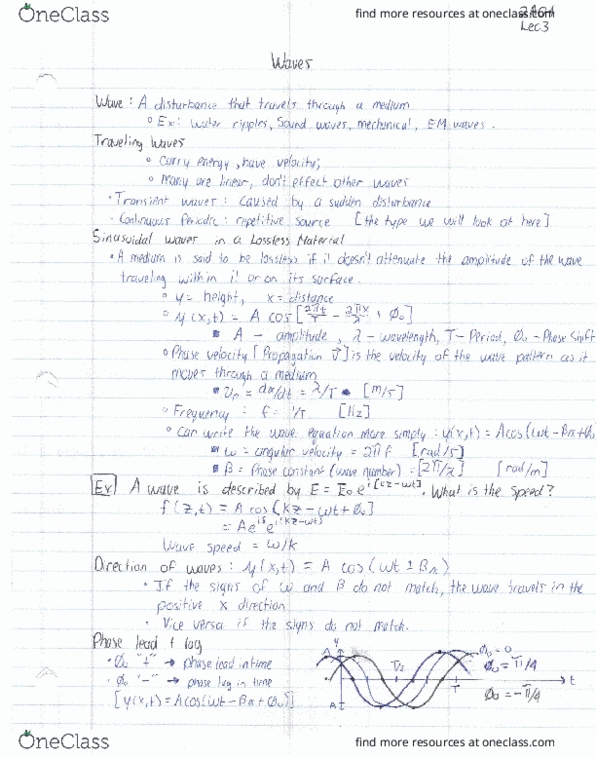 OneClass
find more resources at oneclass.com
Lec 3
Waves
Wave: A disturbance that travels through a medium
◦ Ex: Water ripples, Sound waves, mechanical, EM waves.
Traveling Waves
◦ Carry energy, have velocity,
◦ Many are linear, don't effect other waves
• Transient waves: caused by a sudden disturbance
- Continuous Periodic: repetitive source [the type we will look at here]
Sinusoidal waves in a Lossless Material
• A medium is said to be lossless if it doesn't attenuate the amplitude of the wave
traveling within it or on its surface.
◦ y = height, x = distance
◦ y(x,t) = A cos[2πt/T - 2πx/λ + Φ₀]
▪ A - amplitude, λ - wavelength, T - Period, Φ₀ - Phase Shift
◦ Phase velocity [Propagation V] is the velocity of the wave pattern as it
moves through a medium
▪ Vp = dx/dt = λ/T [m/s]
◦ Frequency: f = 1/T [Hz]
◦ Can write the wave equation more simply: y(x,t) = Acos(ωt - βx + Φ₀
▪ ω = angular velocity = 2πf [rad/s]
▪ β = Phase constant (wave number) = [2π/λ] [rad/m]
Ex A wave is described by E = E₀e^i[kz-wt]. What is the speed?
f(z,t) = A cos(kz - ωt + Φ₀]
= Ae^iδ e^i(kz-wt)
Wave speed = ω/k
Direction of waves: y(x,t) = A cos(ωt ± βx)
• If the signs of ω and β do not match, the wave travels in the
positive x direction.
• Vice versa if the signs do not match.
Phase lead + lag
• Φ₀ "+" → phase lead in time
• Φ₀ "-" → phase lag in time
[y(x,t) = Acos(ωt - βx + Φ₀)]
y
A
A
T/2
T
t
Φ₀ = 0
Φ₀ = π/4
Φ₀ = -π/4
OneClass
find more resources at oneclass.com